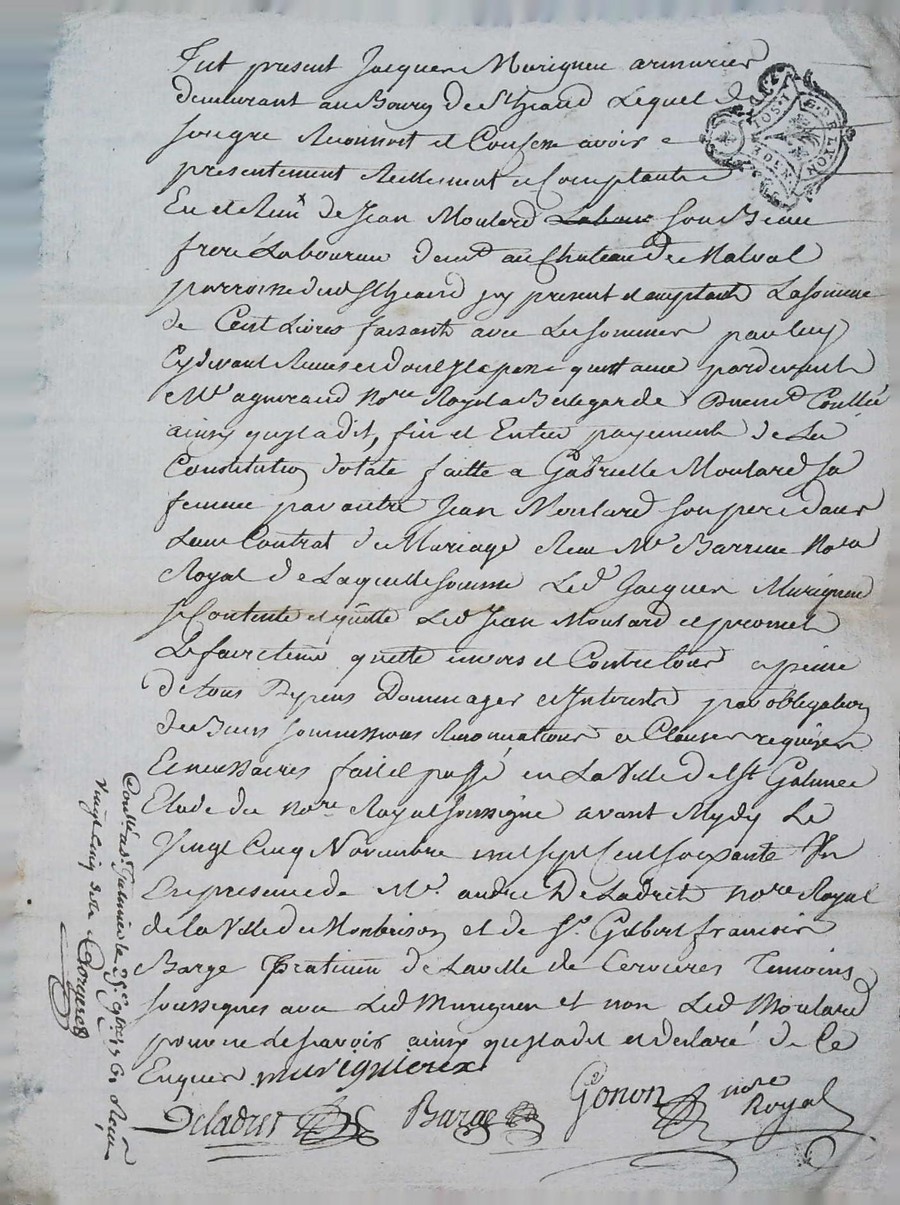 Fut present Jacques Murigneu armurier
demeurant au Bourg de St heand Lequel
de son gre Reconnoit et Confesse avoir
presentement Reellement et Comptant
Eu et Reçu de Jean Moulard Labour son Beau
frere Laboureur demt au Chateau de Malval
parroisse dud St heand jcy present et acceptant La somme
de Cent Livres faisant avec Les sommes par luy
Cy devant Remises dont jl a passé quittance pardevant
Me agniraud Nore Royal a Bellegarde Duement Conllée
ainsy qu jl a dit, fin et Entier payement de La
Constitution dotale faitte a Gabrielle Moulard sa
femme par autre Jean Moulard son pere dans
Leur Contrat de Mariage Reçu Me Barrieu Nore
Royal de Laquelle somme Led Jacques Murigneu
se Contente et quitte Led Jean Moulard et promet
Le faire tenir quitte envers et Contre tous a peine
de tous Depens Dommages et Interets par obligation
de Biens soumissions Renonciations et Clauses requises
Et necessaires fait et passé en La Ville de St Galmier
Etude du nore Royal soussigné avant Mydy Le
Vingt Cinq Novembre mil sept Cent soixante Un
En presence de Me andré DeLadret nore Royal
de la Ville de Montbrison et de Sr Gilbert francois
Barge Praticien de La ville de Cervieres Temoins
soussignes avec Led Murigneu et non Led Moulard
pour ne Le savoir ainsy qu jl a dit et declaré de Ce
Enquis murignieux
Deladret Barge Gonon nore
Royal
Conllé a St Galmier le 25e 9bre 1761 Reçu
Vingt Cinq sols
G. DE LYON